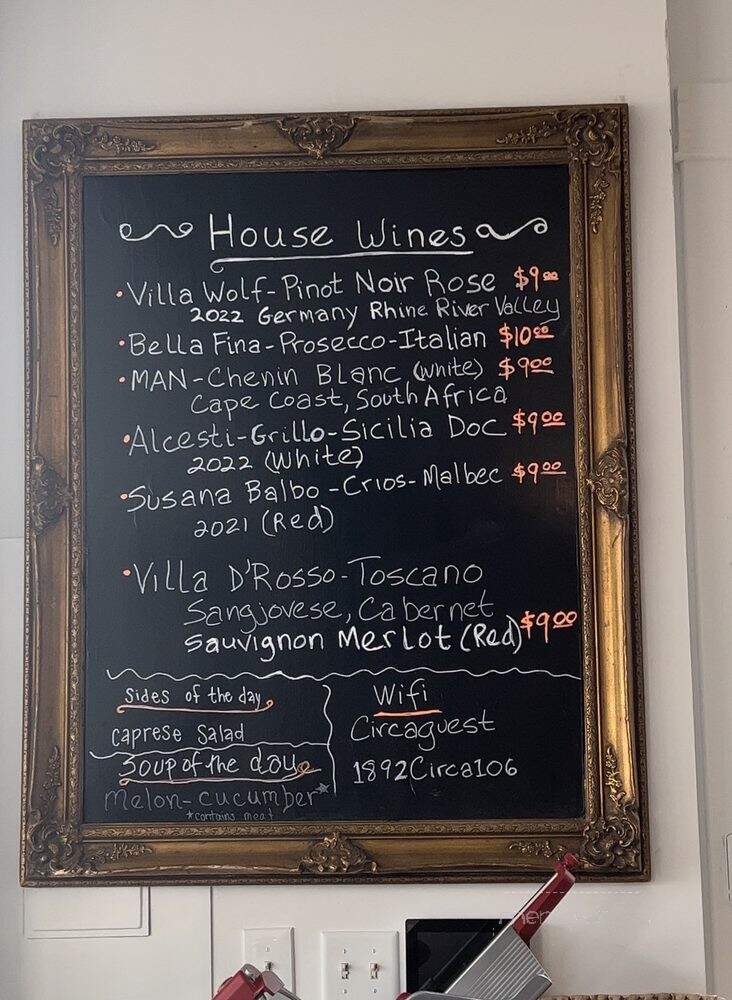 House Wines
• Villa Wolf - Pinot Noir Rose $9.00
2022 Germany Rhine River Valley
• Bella Fina - Prosecco - Italian $10.00
• MAN - Chenin Blanc (white) $9.00
Cape Coast, South Africa
• Alcesti - Grillo - Sicilia Doc $9.00
2022 (White)
• Susana Balbo - Crios - Malbec $9.00
2021 (Red)
• Villa D'Rosso - Toscano
Sangjovese, Cabernet
Sauvignon Merlot (Red) $9.00
Sides of the day
Caprese Salad
Soup of the day
Melon - cucumber*
*contains meat
Wifi
Circaguest
1892Circa106